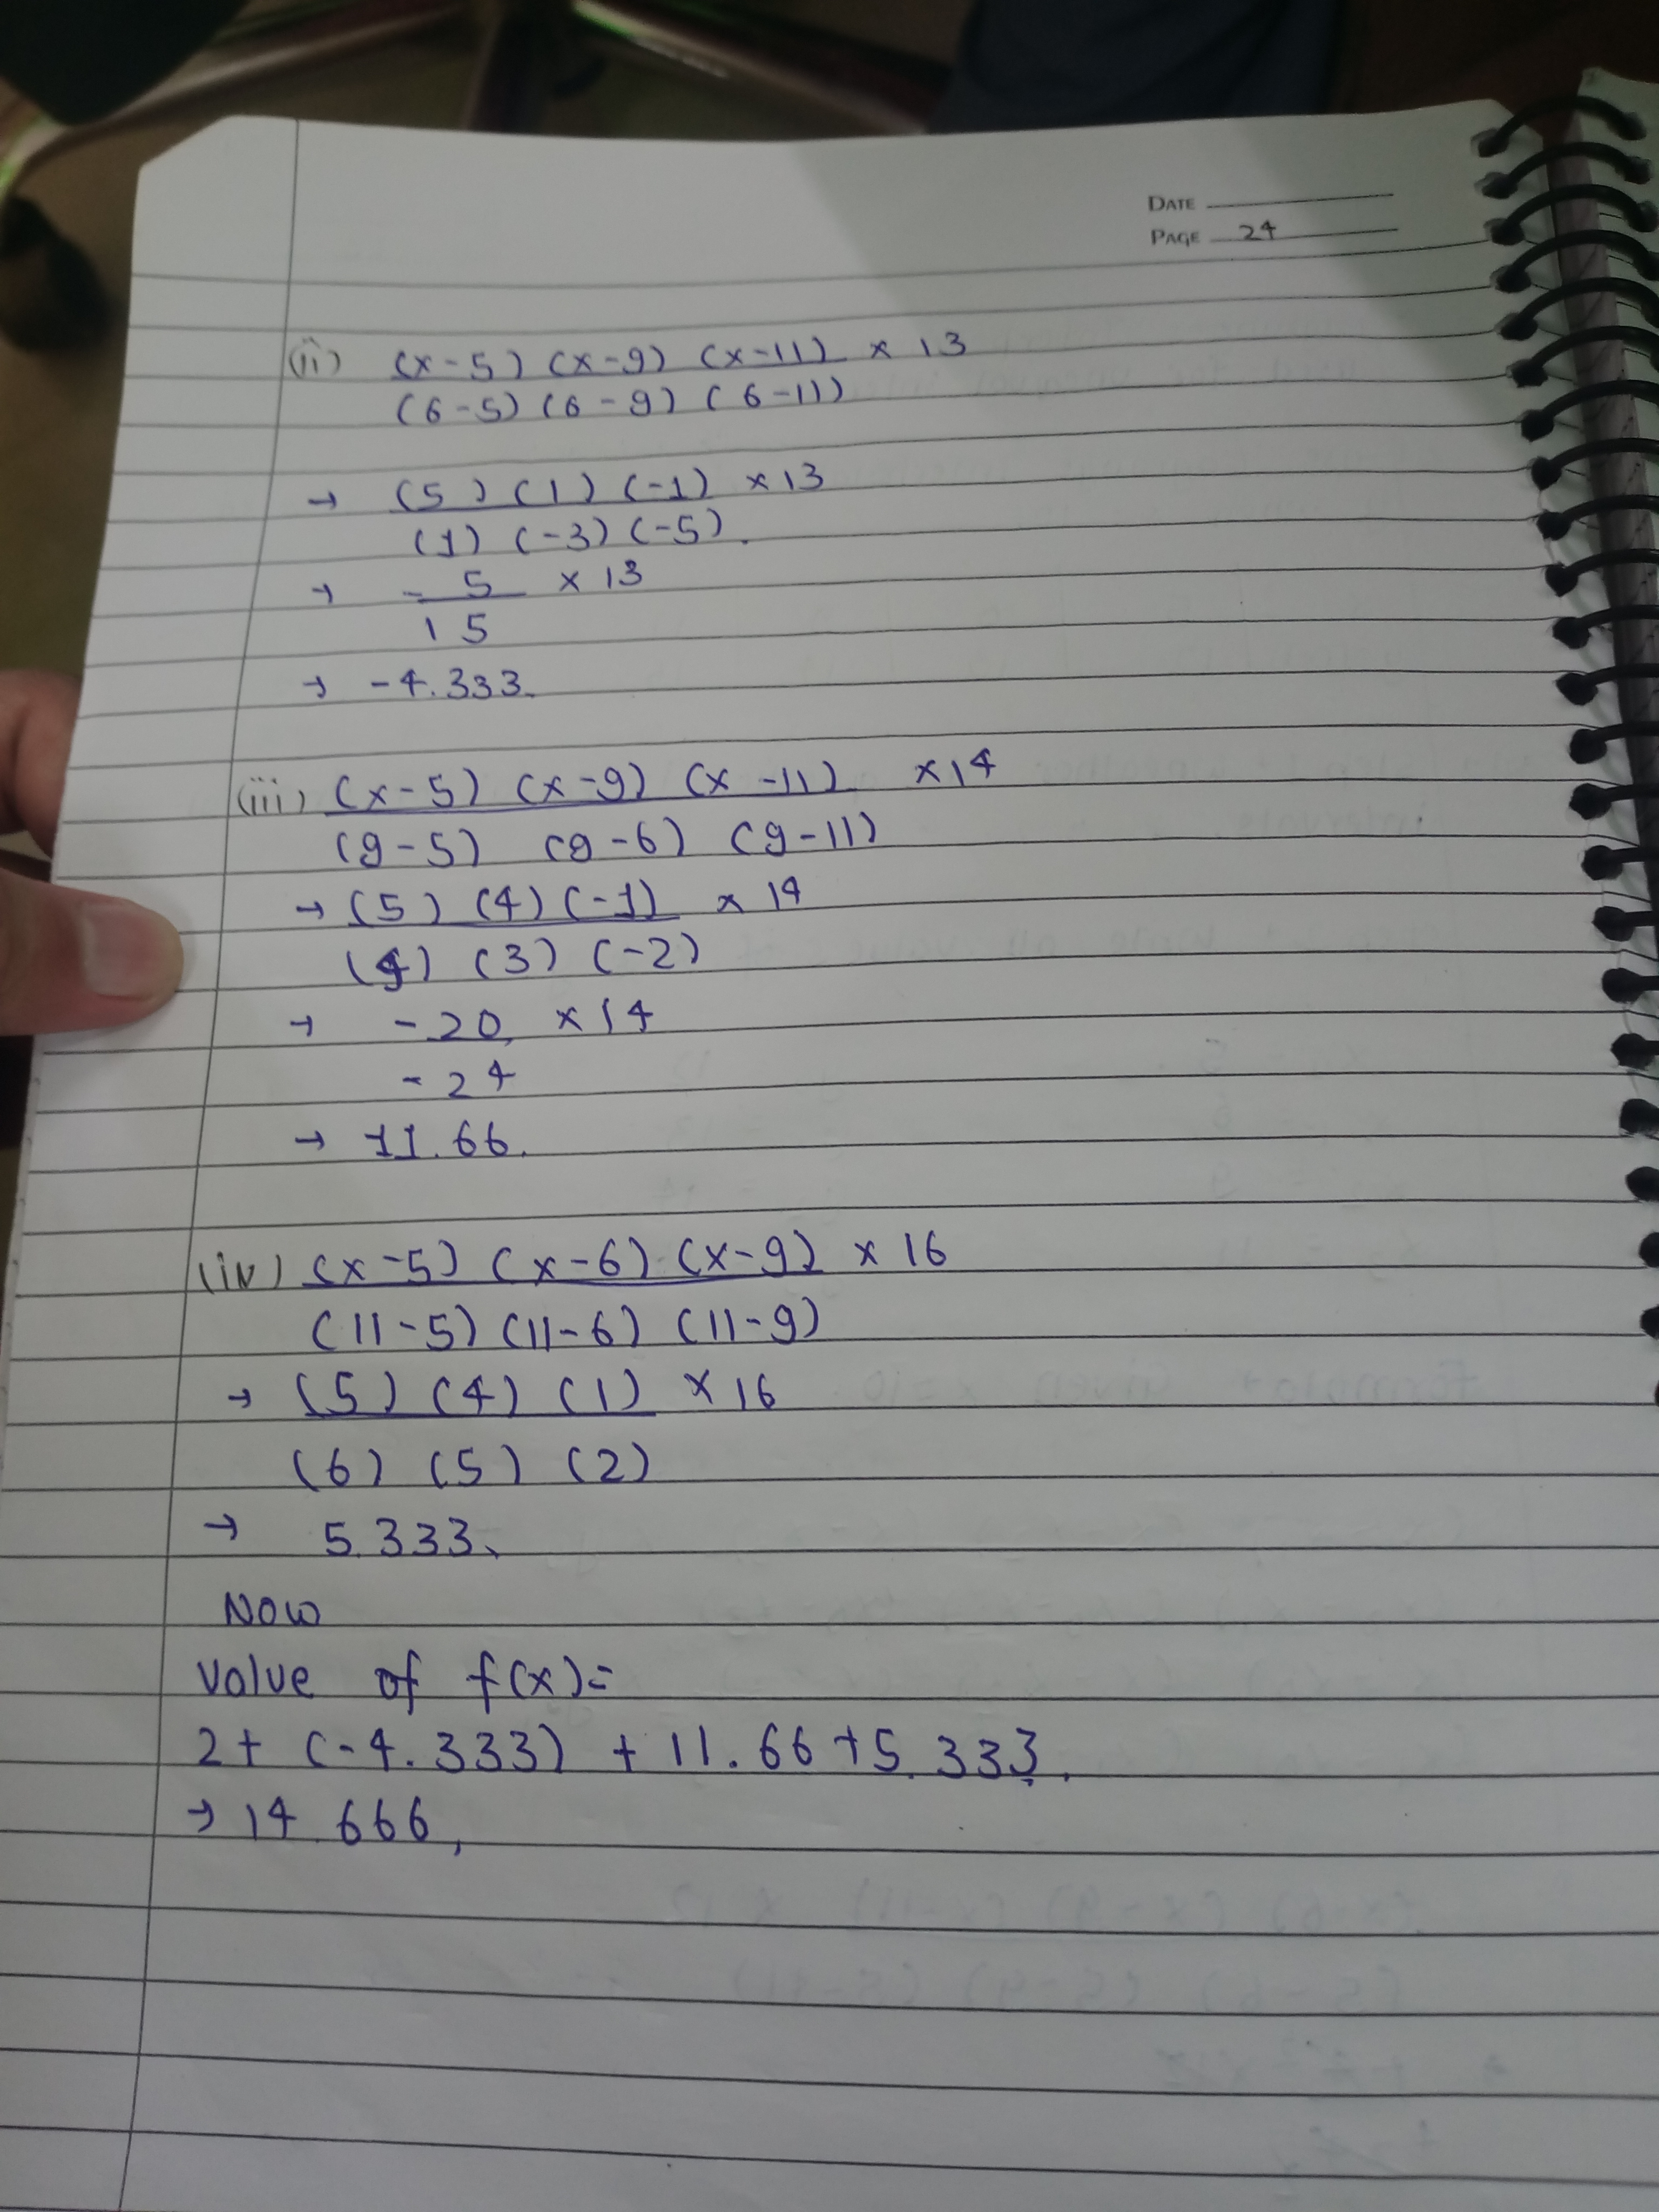 DATE
PAGE 24
(ii) (x-5) (x-9) (x-11) × 13
(6-5) (6-9) (6-11)
→ (5) (1) (-1) × 13
(1) (-3) (-5).
→ -5 × 13
15
→ -4.333.
(iii) (x-5) (x-9) (x-11) ×14
(9-5) (9-6) (9-11)
→ (5) (4) (-1) × 14
(4) (3) (-2)
→ -20 ×14
-24
→ 11.66.
(iv) (x-5) (x-6) (x-9) × 16
(11-5) (11-6) (11-9)
→ (5) (4) (1) × 16
(6) (5) (2)
→ 5.333.
Now
value of f(x)=
2+ (-4.333) + 11.66+5.333.
→ 14.666,